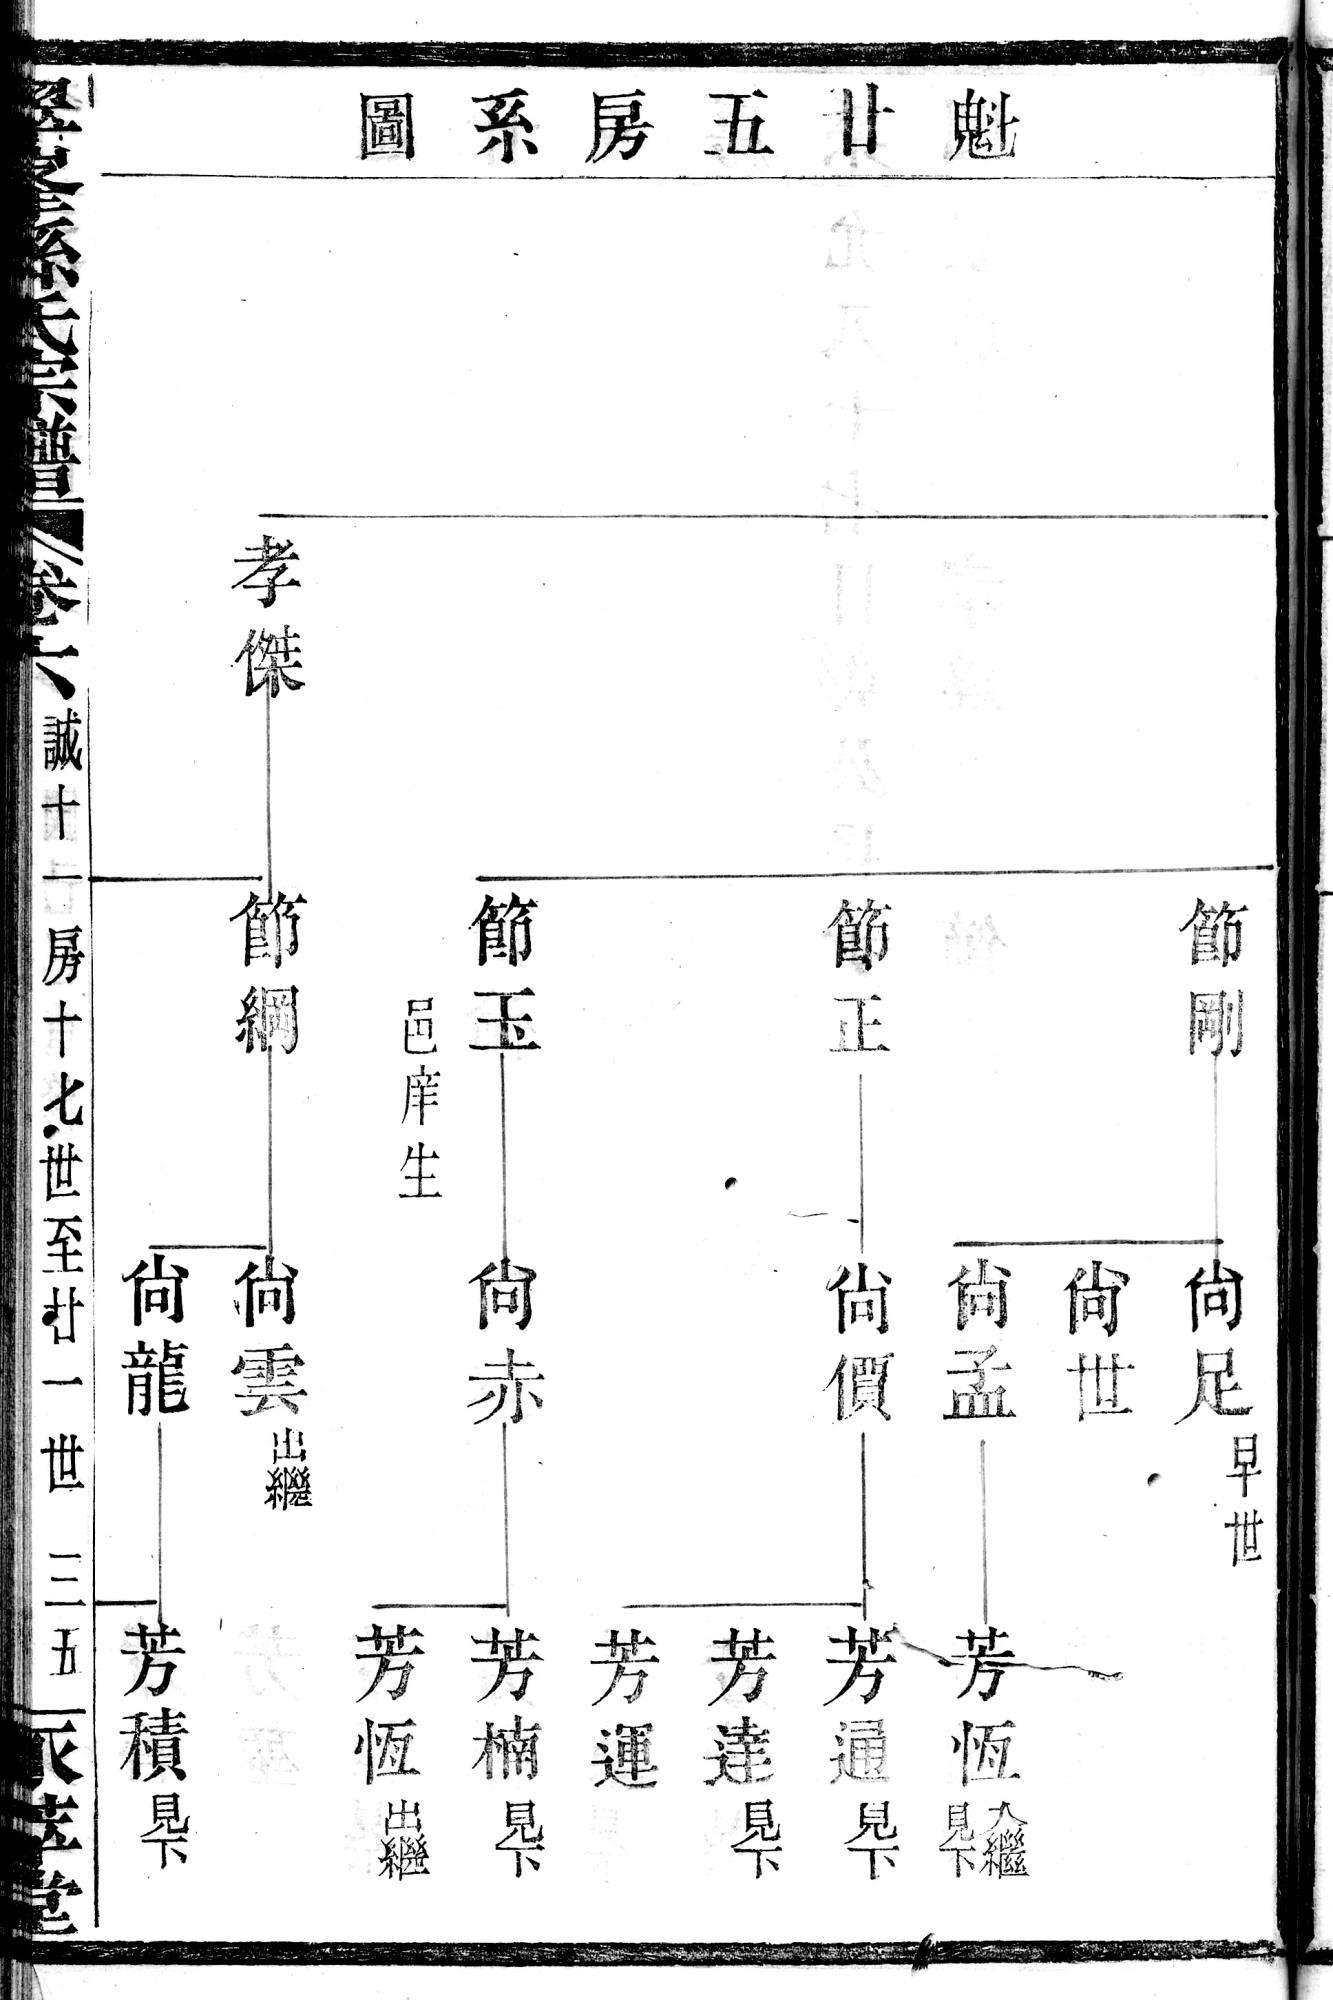 魁廿五房系圖
節剛
節正
節玉
邑庠生
孝傑
節綱
尙足
早世
尙世
尙孟
尙價
尙赤
尙雲
出繼
尙龍
芳恆
入繼
見下
芳通
見下
芳達
見下
芳運
芳楠
見下
芳恆
出繼
芳積
見下
孫氏宗譜
卷六
誠十一房十七世至廿一世
三五
堂